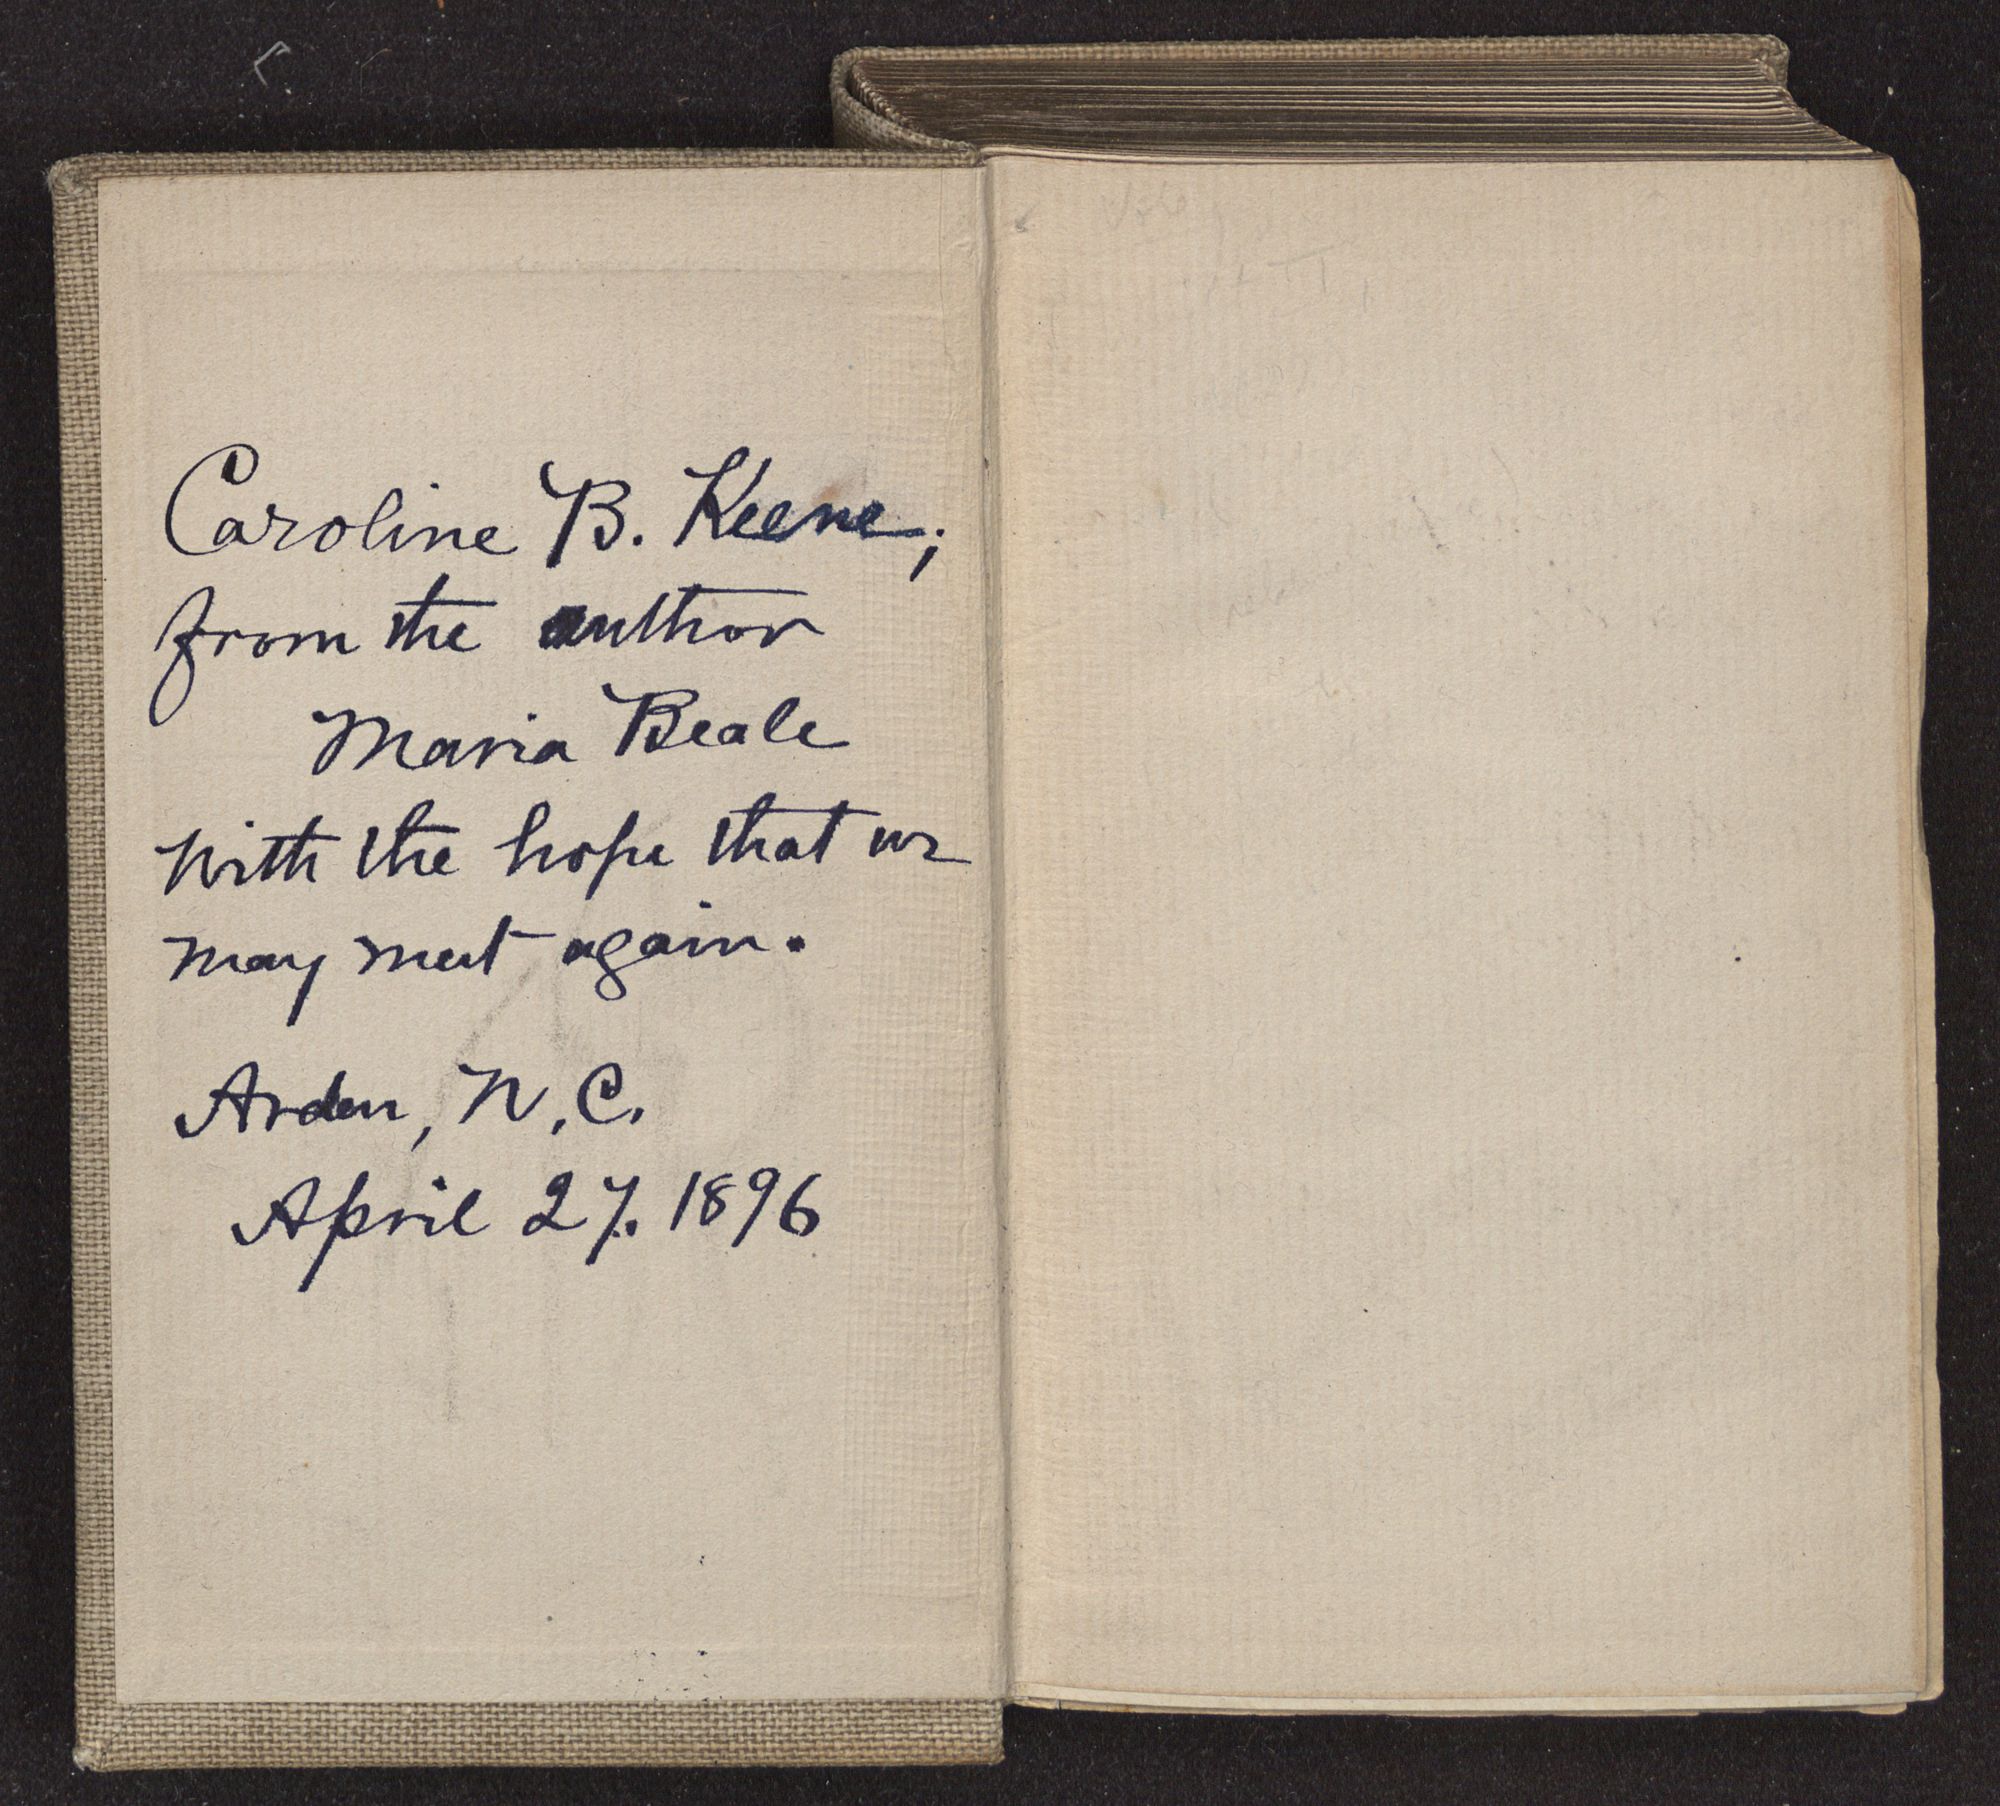 Caroline B. Keene;
from the author
Maria Beale
with the hope that we
may meet again.
Arden, N.C.
April 27. 1896